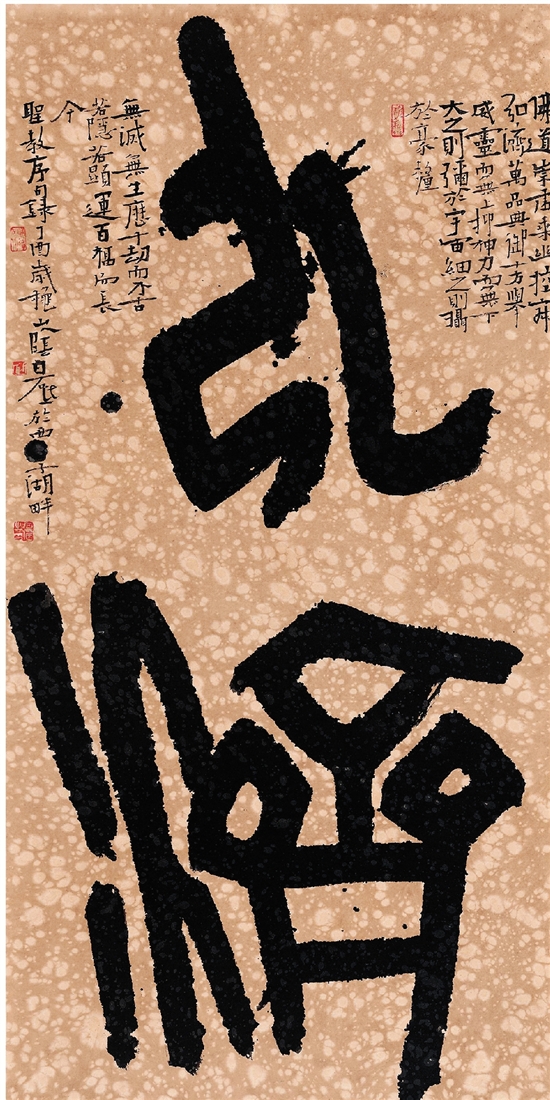 佛道崇虛乘幽控寂
弘濟萬品典御十方舉
威靈而無上抑神力而無下
大之則彌於宇宙細之則攝
於豪釐
弘濟
無滅無生歷千劫而不古
若隱若顯運百福而長
今
聖教序句錄丁酉歲穐山陰白砥於西子湖畔